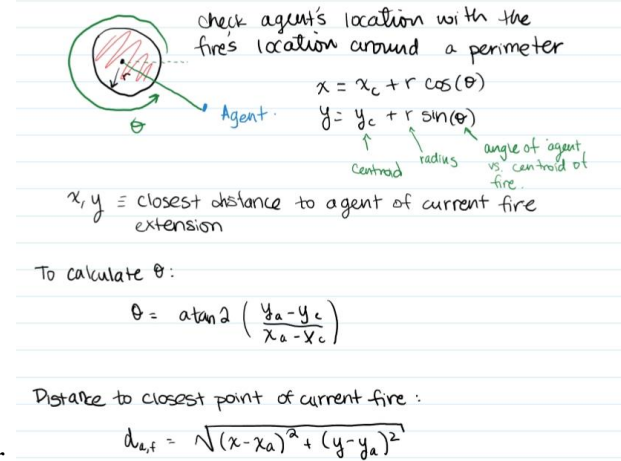 check agent's location with the
fire's location around a perimeter
r
θ
Agent.
x = x_c + r cos(θ)
y = y_c + r sin(θ)
centroid
radius
angle of agent
vs. centroid of
fire.
x, y ≡ closest distance to agent of current fire
extension
To calculate θ:
θ = atan2 ( y_a - y_c / x_a - x_c )
Distance to closest point of current fire :
d_a,f = √(x - x_a)² + (y - y_a)²